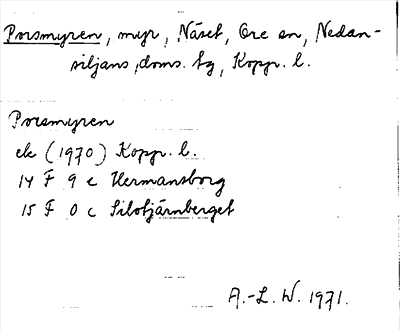 Porsmyren, myr, Näset, Ore sn, Nedan-
siljans doms. tg, Kopp. l.
Porsmyren
ek (1970) Kopp. l.
14 F 9 c Hermansborg
15 F 0 c Silotjärnberget
A.-L. W. 1971.